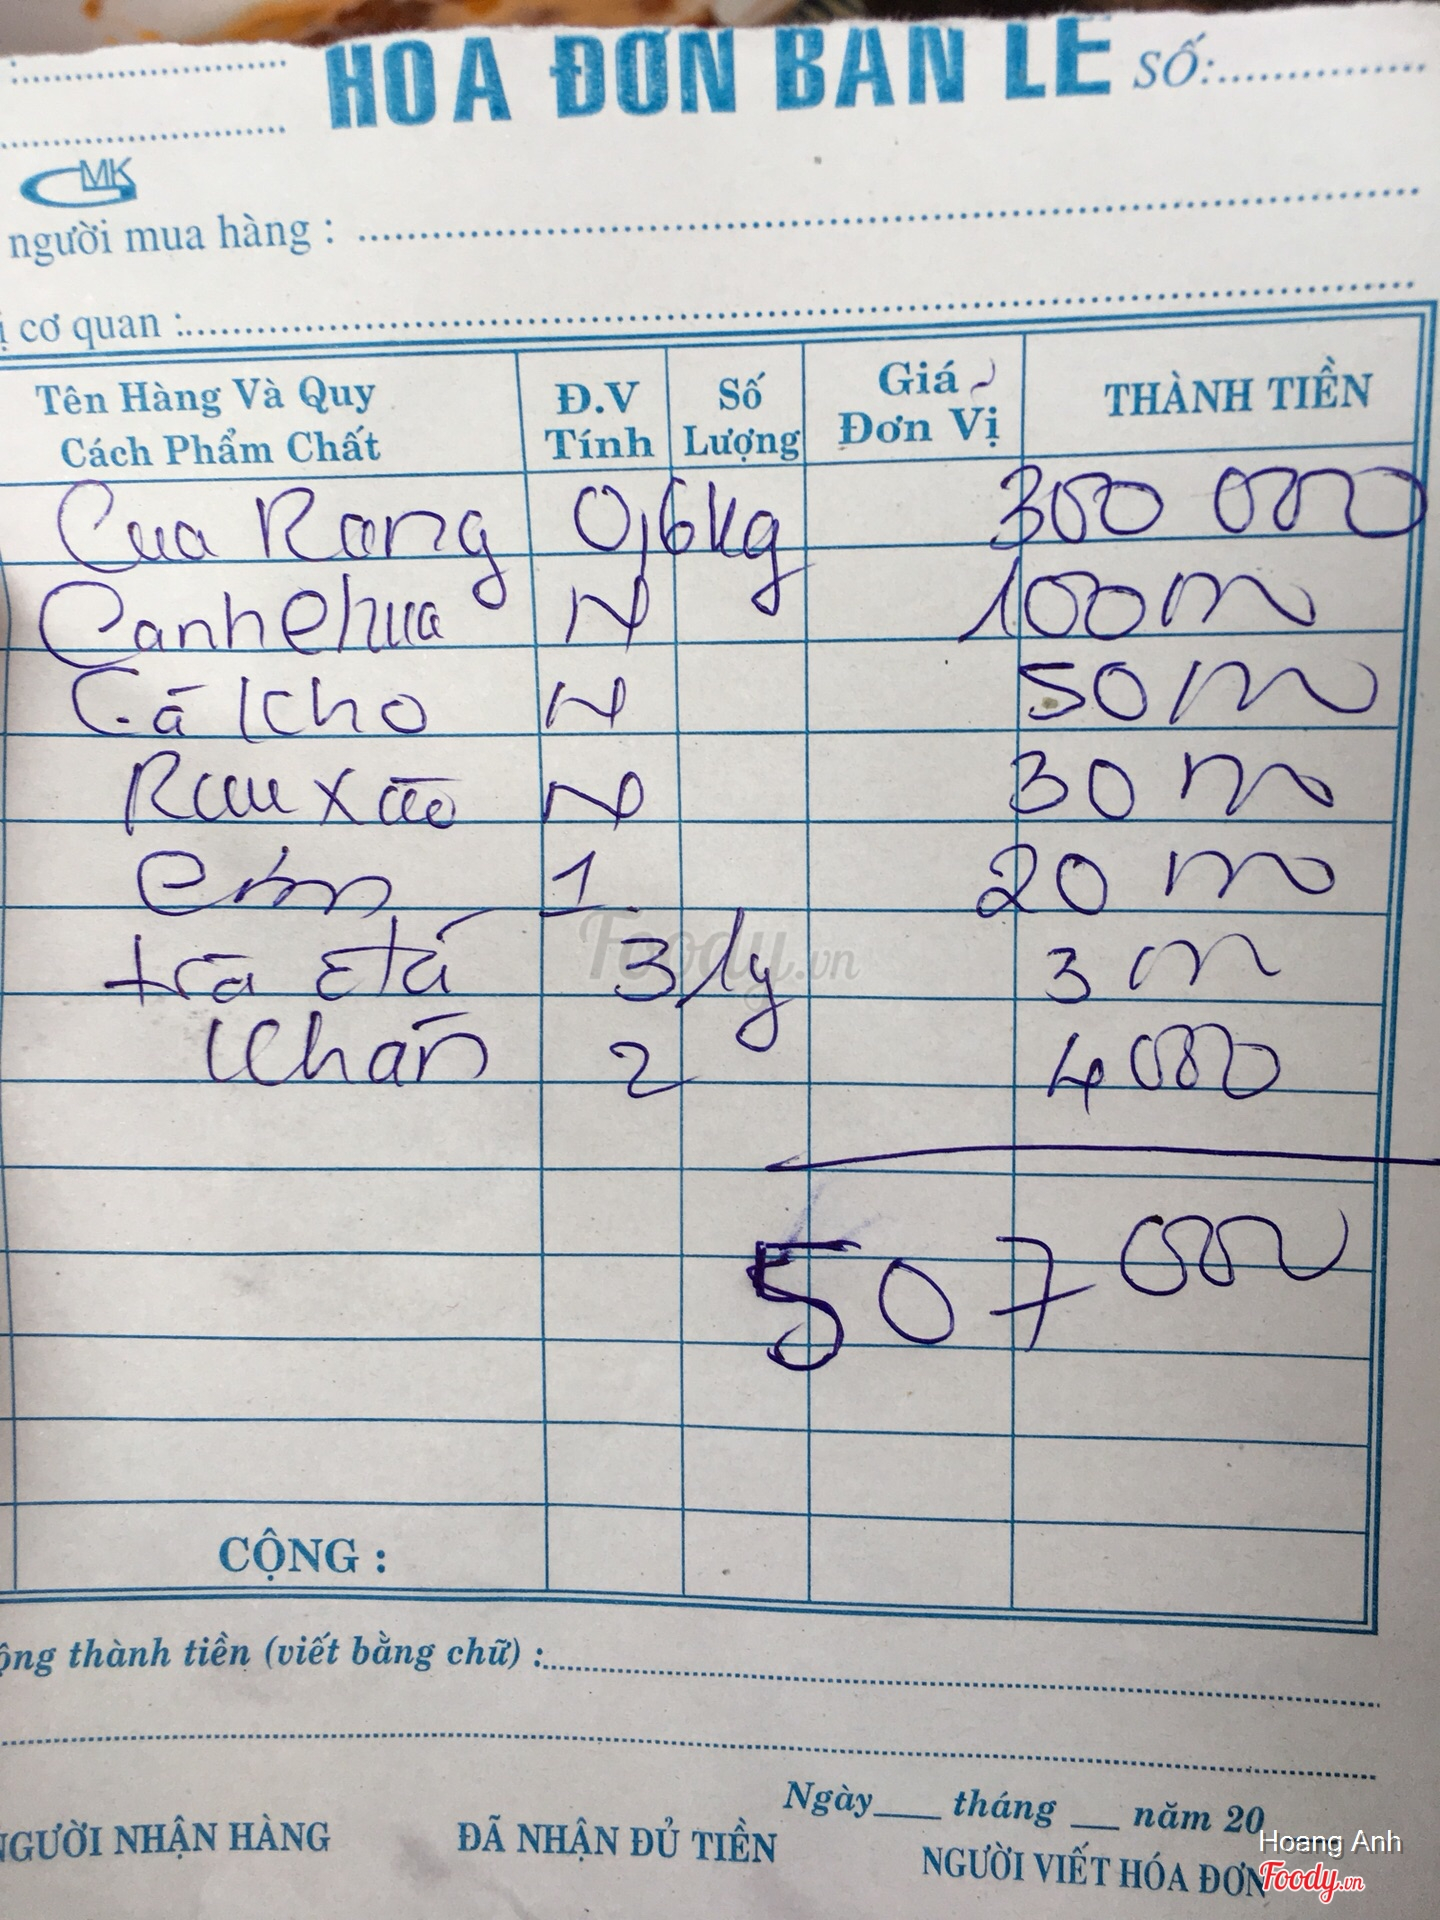 HÓA ĐƠN BÁN LẺ SỐ:
MK
người mua hàng :
ị cơ quan :
Tên Hàng Và Quy Cách Phẩm Chất Đ.V Tính Số Lượng Giá Đơn Vị THÀNH TIỀN
Cua Rang 0,6kg 300 000
Canh chua N 100
Cá kho N 50
Rau xào N 30
Cơm 1 20
trà đá 3 ly 3
Khăn 2 4000
507 000
CỘNG :
ộng thành tiền (viết bằng chữ) :
Ngày tháng năm 20
NGƯỜI NHẬN HÀNG ĐÃ NHẬN ĐỦ TIỀN NGƯỜI VIẾT HÓA ĐƠN
Foody.vn
Hoang Anh
Foody.vn